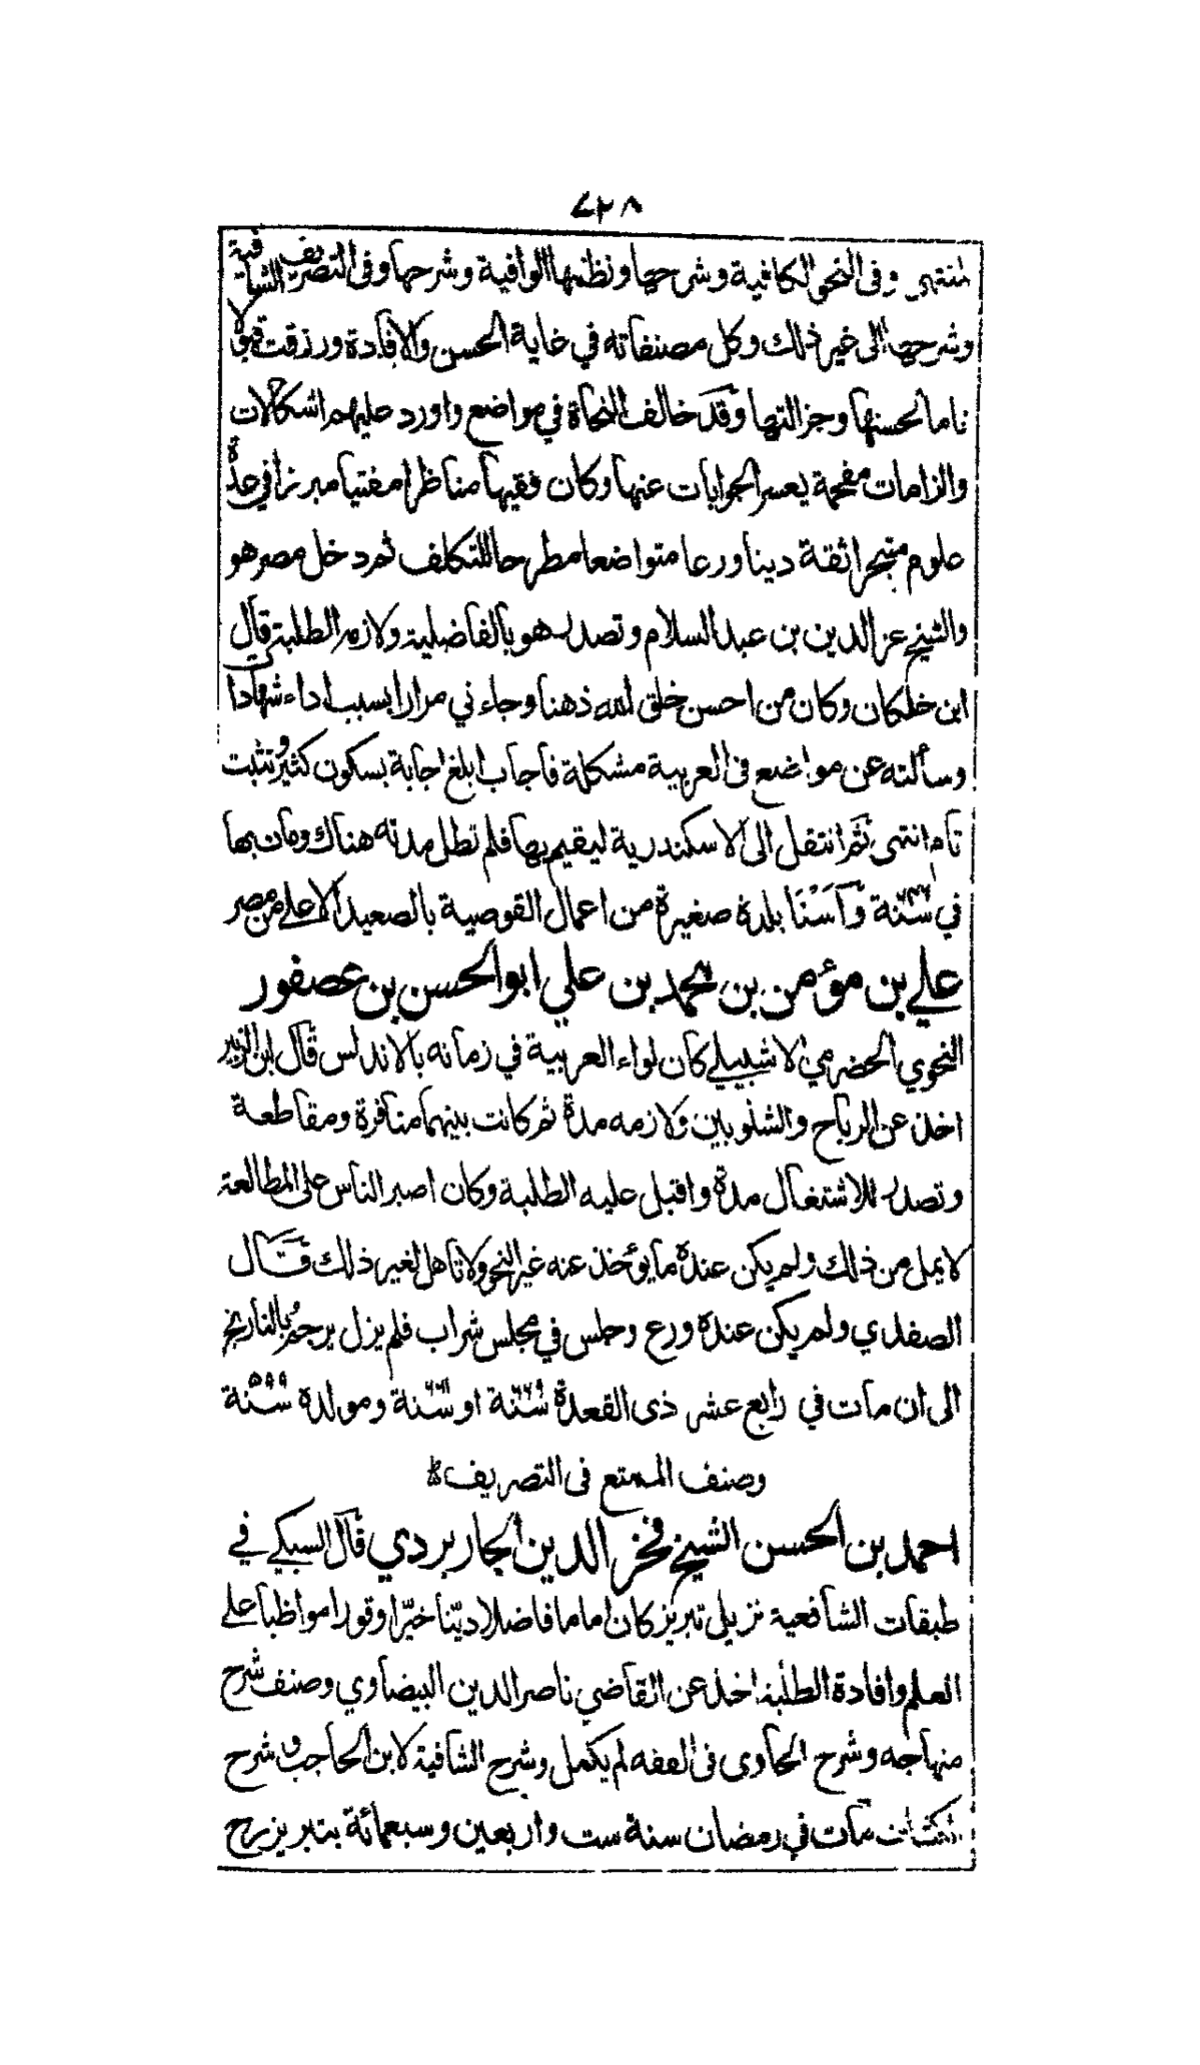 ٤٢٨
المنتهى وفى النحو الكافية وشرحها ونظمها الوافية وشرحها وفى التصريف الشافية
وشرحها الى غير ذلك وكل مصنفاته في غاية الحسن والافادة ورزقت قبولا
تاما لحسنها وجزالتها وقد خالف النحاة في مواضع واورد عليهم اشكالات
والزامات مفحمة يعسر الجوابات عنها وكان فقيها مناظرا مفتيا مبرزا في عدة
علوم متبحرا ثقة دينا ورعا متواضعا مطرحا للتكلف ثم دخل مصر هو
والشيخ عز الدين بن عبد السلام وتصدر هو بالفاضلية ولازمه الطلبة قال
ابن خلكان وكان من احسن خلق الله ذهنا وجاءني مرارا بسبب اداء شهادات
وسألته عن مواضع فى العربية مشكلة فاجاب ابلغ اجابة بسكون كثير وتثبت
تام انتهى ثم انتقل الى الاسكندرية ليقيم بها فلم تطل مدته هناك ومات بها
في سنة ٦٤٦ وآسنا بلدة صغيرة من اعمال القوصية بالصعيد الاعلى من مصر
علي بن مؤمن بن محمد بن علي ابو الحسن بن عصفور
النحوي الحضرمي الاشبيلي كان لواء العربية في زمانه بالاندلس قال ابن الزبير
اخذ عن الرباح والشلوبين ولازمه مدة ثم كانت بينهما منافرة ومقاطعة
وتصدر للاشتغال مدة واقبل عليه الطلبة وكان اصبر الناس على المطالعة
لا يمل من ذلك ولم يكن عنده ما يؤخذ عنه غير النحو ولا تاهل لغير ذلك قال
الصفدي ولم يكن عنده ورع وجلس في مجلس شراب فلم يزل يرجم بالنارنج
الى ان مات في رابع عشر ذى القعدة سنة ٦٦٣ او سنة ٦٦٩ ومولده سنة ٥٩٩
وصنف الممتع فى التصريف
احمد بن الحسن الشيخ فخر الدين الجاربردي قال السبكي في
طبقات الشافعية نزيل تبريز كان اماما فاضلا ديّنا خيّرا وقورا مواظبا على
العلم وافادة الطلبة اخذ عن القاضي ناصر الدين البيضاوي وصنف شرح
منهاجه وشرح الحاوى فى الفقه لم يكمل وشرح الشافية لابن الحاجب وشرح
الكشاف مات في رمضان سنة ست واربعين وسبعمائة بتبريز رح